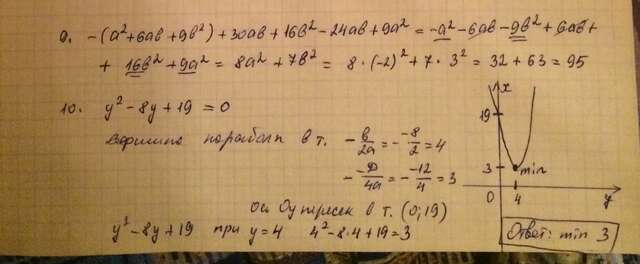 9. -(a²+6ab+9b²)+30ab+16b²-24ab+9a² = -a²-6ab-9b²+6ab+
+ 16b²+9a² = 8a²+7b² = 8·(-2)²+7·3² = 32+63 = 95
10. y²-8y+19=0
вершина параболы в т. -b/2a = -(-8)/2 = 4
-D/4a = -(-12)/4 = 3
ось Oy пересек в т. (0;19)
y²-8y+19 при y=4 4²-8·4+19=3
x
19
3
min
0
4
y
Ответ: min 3